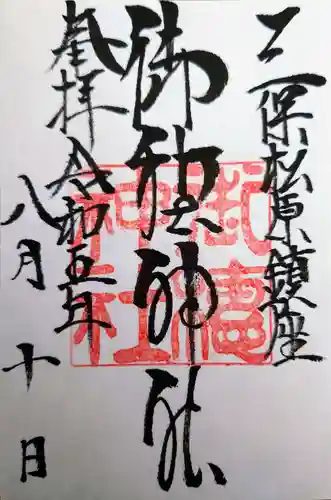 三保松原鎮座
御穂神社
奉拝 令和五年
八月十日
御穂
神社